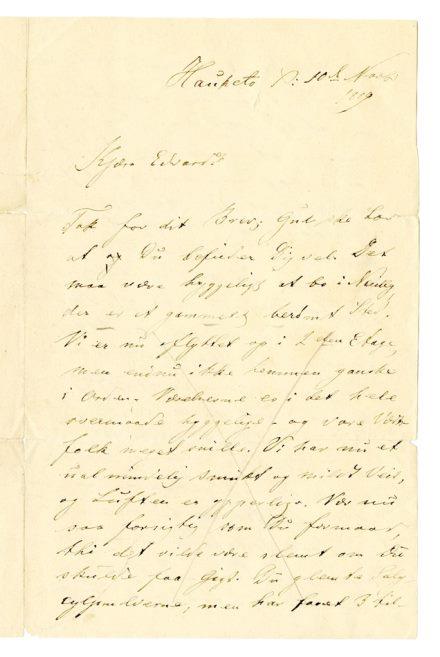 Hauketo d: 10d Novb
1889
Kjære Edvard!
Tak for dit Brev; Gud ske Lov
at og Du befinder Dig vel. Det
maa være hyggeligt at bo i
der er et gammelt berømt Sted.
Vi er nu oflyttet op i 2den Etage,
men endnu ikke kommen ganske
i Orden. Værelserne er i det hele
overmaade hyggelige - og vore Værts
folk meget snille. Vi har nu et
ualmindelig smukt og mildt Veir,
og Luften er ypperlig. Vær nu
saa forsigtig som Du formaar,
thi det vilde være slemt om Du
skulde faa Gigt. Du glemte Saly
cylpulverne, men har faaet 3 til